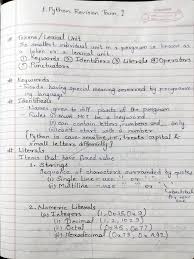 1. Python Revision Tour I
# Tokens / Lexical Unit
The smallest individual unit in a program is known
as token or a lexical unit.
① Keywords ② Identifiers ③ Literals ④ Operators
⑤ Punctuators
# Keywords
Words having special meaning reserved by programm
ing language
# Identifiers
Names given to diff parts of the program
Rules (i) Must not be a keyword
(ii) Can contain letters numbers and _ only
start with a number
Python is case sensitive, treats capital &
small letters differently
# Literals
Items that have fixed value
1. Strings
Sequence of characters surrounded by quotes
(i) Single line
(ii) Multiline
2. Numeric Literals
(i) Integers
(i) Decimal (1, 2, 102)
(ii) Octal (0o35, 0o77)
(iii) Hexadecimal (0x73, 0xA92)